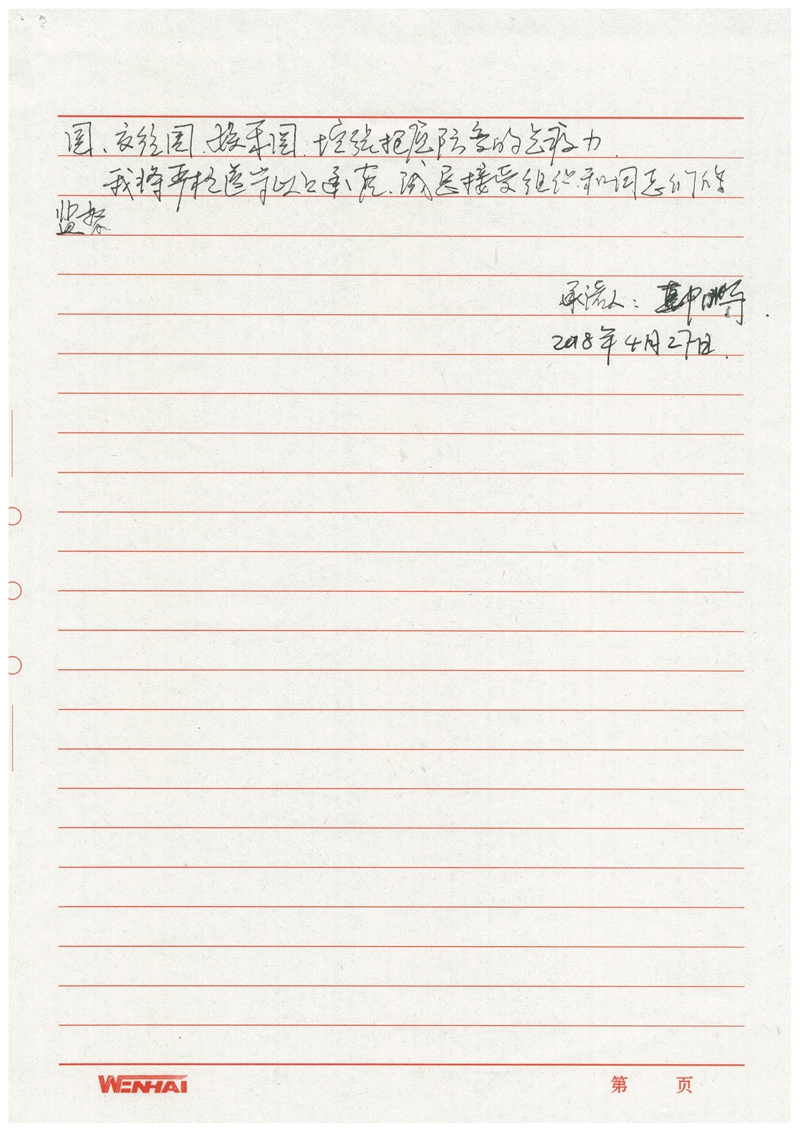 圈、交往圈、娱乐圈,增强拒腐防变的免疫力.
我将严格遵守以上承诺,诚恳接受组织和同志们的
监督
承诺人:
2018年4月27日.
WENHAI 第 页